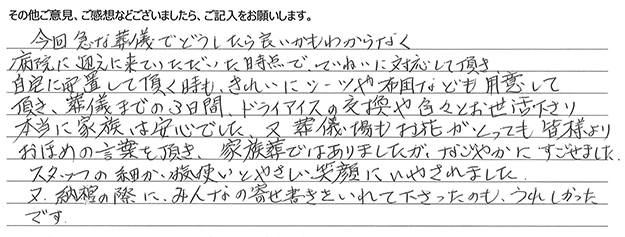 その他ご意見、ご感想などございましたら、ご記入をお願いします。
今回急な葬儀でどうしたら良いかもわからなく
病院に迎えに来ていただいた時点で、ていねいに対応して頂き
自宅に配置して頂く時も、きれいにシーツや布団なども用意して
頂き、葬儀までの3日間、ドライアイスの交換や色々とお世話下さり
本当に家族は安心でした、又葬儀場もお花がとっても皆様より
おほめの言葉を頂き、家族葬ではありましたが、なごやかにすごせました。
スタッフの細かい気使いとやさしい笑顔にいやされました。
又、納棺の際に、みんなの寄せ書きをいれて下さったのも、うれしかった
です。